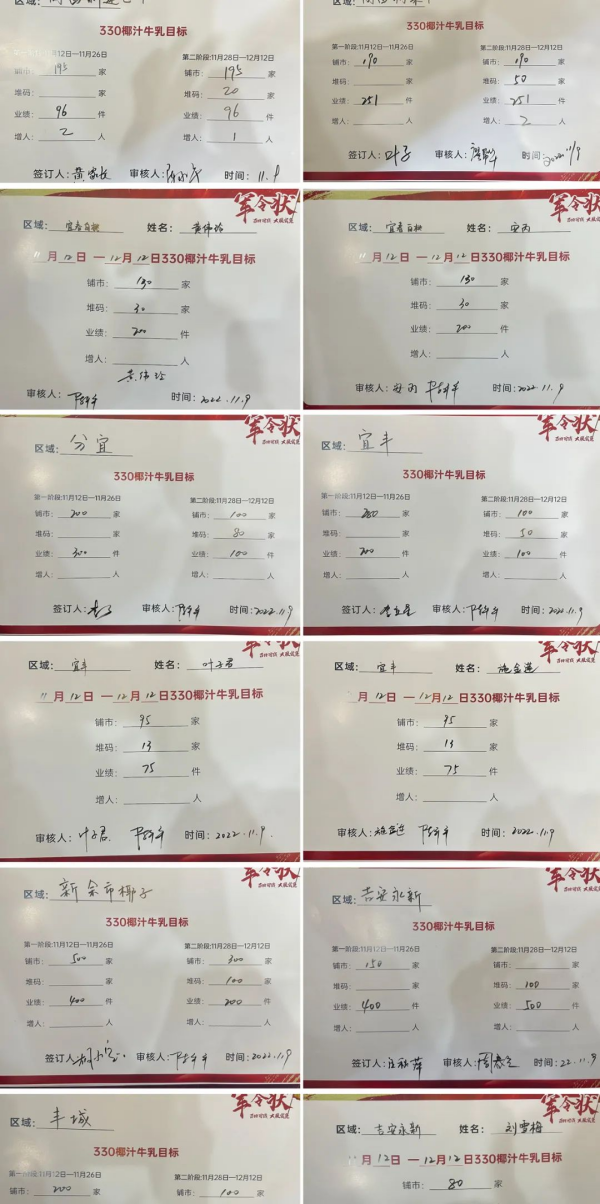 区域:
330椰汁牛乳目标
第一阶段:11月12日—11月26日
第二阶段:11月28日—12月12日
铺市: 195 家
铺市: 195 家
堆码: 家
堆码: 20 家
业绩: 96 件
业绩: 96 件
增人: 2 人
增人: 1 人
签订人:
审核人:
时间: 11.9
330椰汁牛乳目标
第一阶段:11月12日—11月26日
第二阶段:11月28日—12月12日
铺市: 190 家
铺市: 190 家
堆码: 家
堆码: 50 家
业绩: 251 件
业绩: 251 件
增人: 人
增人: 2 人
签订人: 叶子
审核人:
时间: 2022 11/9
军令状
区域: 宜春
姓名: 黄伟玲
11月12日—12月12日330椰汁牛乳目标
铺市: 130 家
堆码: 30 家
业绩: 200 件
增人: 人
黄伟玲
审核人:
时间: 2022.11.9
军令状
区域: 宜春
姓名: 安丙
11月12日—12月12日330椰汁牛乳目标
铺市: 130 家
堆码: 30 家
业绩: 200 件
增人: 人
审核人: 安丙
时间: 2022.11.9
军令状
区域: 分宜
330椰汁牛乳目标
第一阶段:11月12日—11月26日
第二阶段:11月28日—12月12日
铺市: 200 家
铺市: 100 家
堆码: 家
堆码: 80 家
业绩: 300 件
业绩: 100 件
增人: 人
增人: 人
签订人:
审核人:
时间: 2022.11.9
军令状
区域: 宜丰
330椰汁牛乳目标
第一阶段:11月12日—11月26日
第二阶段:11月28日—12月12日
铺市: 200 家
铺市: 100 家
堆码: 家
堆码: 50 家
业绩: 200 件
业绩: 100 件
增人: 人
增人: 人
签订人:
审核人:
时间: 2022.11.9
军令状
区域: 宜丰
姓名: 叶子君
11月12日—12月12日330椰汁牛乳目标
铺市: 95 家
堆码: 13 家
业绩: 75 件
增人: 人
审核人: 叶子君
时间: 2022.11.9.
军令状
区域: 宜丰
姓名: 施金莲
月12日—12月12日330椰汁牛乳目标
铺市: 95 家
堆码: 13 家
业绩: 75 件
增人: 人
审核人: 施金莲
时间: 2022.11.9
军令状
区域: 新余市椰子
330椰汁牛乳目标
第一阶段:11月12日—11月26日
第二阶段:11月28日—12月12日
铺市: 500 家
铺市: 300 家
堆码: 家
堆码: 100 家
业绩: 400 件
业绩: 200 件
增人: 人
增人: 人
签订人
审核人:
时间: 2022.11.9
军令状
区域: 吉安永新
330椰汁牛乳目标
第一阶段:11月12日—11月26日
第二阶段:11月28日—12月12日
铺市: 150 家
铺市: 家
堆码: 家
堆码: 100 家
业绩: 400 件
业绩: 500 件
增人: 人
增人: 人
签订人:
审核人:
时间: 22.11.9
军令状
区域: 丰城
330椰汁牛乳目标
第一阶段:11月12日—11月26日
第二阶段:11月28日—12月12日
铺市: 200 家
铺市: 100 家
军令状
区域: 吉安永新
姓名: 刘雪梅
11月12日—12月12日330椰汁牛乳目标
铺市: 80 家